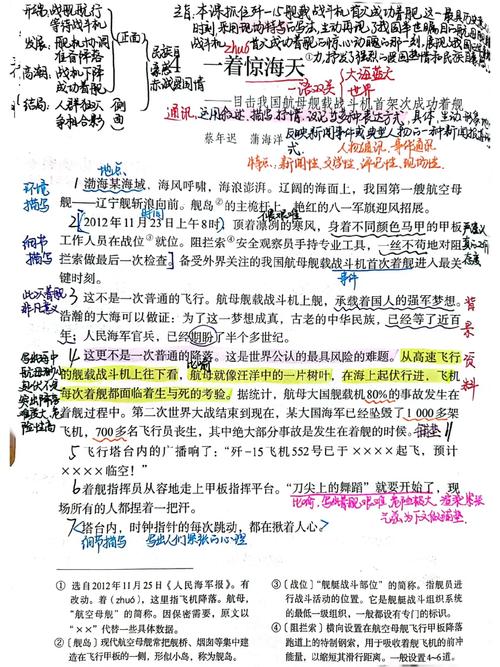 开端：战舰航行
等待战机
发展：舰机协调
准备降落
高潮：战机下降
成功着舰
结局：人群狂欢
争相合影
（正面）
侧面
民族自豪感
赤子爱国情
主旨：本课抓住歼-15舰载战斗机首次成功着舰这一最具历史
时刻
zhuó
一着惊海天
一语双关
大海蓝天
世界
——目击我国航母舰载战斗机首架次成功着舰
通讯：运用叙述、描写、抒情、议论等多种表达方式，具体、生动、形象
反映新闻事件或典型人物的一种新闻报道
式。
蔡年迟 蒲海洋
人物通讯、事件通讯
特点：新闻性、文学性、评论性、现场性。
地点
环境
描写
1 渤海某海域，海风呼啸，海浪澎湃。辽阔的海面上，我国第一艘航空母
舰——辽宁舰斩浪向前。舰岛②的主桅杆上，艳红的八一军旗迎风招展。
时间
很艰难
2 2012年11月23日上午8时，顶着凛冽的寒风，身着不同颜色马甲的甲板
细节
描写
工作人员在战位③就位。阻拦索④安全观察员手持专业工具，一丝不苟地对阻
拦索做最后一次检查。备受外界关注的我国航母舰载战斗机首次着舰进入最关
键时刻。
事件
此次着舰
非凡意义
3 这不是一次普通的飞行。航母舰载战斗机上舰，承载着国人的强军梦想。
浩瀚的大海可以做证：为了这一梦想成真，古老的中华民族，已经等了近百
年；人民海军官兵，已经期盼了半个多世纪。
背景资料
4 这更不是一次普通的降落。这是世界公认的最具风险的难题。从高速飞行
比喻
的舰载战斗机上往下看，航母就像汪洋中的一片树叶，在海上起伏行进，飞机
每次着舰都面临着生与死的考验。据统计，航母大国舰载机80%的事故发生在
着舰过程中。第二次世界大战结束到现在，某大国海军已经毁了1000多架
飞机，700多名飞行员丧生，其中绝大部分事故是发生在着舰的时候。铺垫
5 飞行塔台内的广播响了：“歼-15飞机552号已于××××起飞，预计
××××临空！”
6 着舰指挥员从容地走上甲板指挥平台。“刀尖上的舞蹈”就要开始了，现
场所有的人都捏着一把汗。
比喻，写出着舰艰难、危险极大，渲染紧张
气氛，为下文做铺垫
7 塔台内，时钟指针的每次跳动，都在揪着人心。
细节描写 写出人们紧张的心理
① 选自2012年11月25日《人民海军报》。有
改动。着（zhuó），这里指飞机降落。航母，
“航空母舰”的简称。因保密需要，原文以
“××”代替一些具体数据。
②〔舰岛〕现代航空母舰常把舰桥、烟囱等集中建
造在飞行甲板的一侧，形似小岛，称为舰岛。
③〔战位〕“舰艇战斗部位”的简称。指舰员进
行战斗活动的位置。它是舰艇战斗组织系统
的最低一级组织，一般都设有专门的标识。
④〔阻拦索〕横向设置在航空母舰飞行甲板降落
跑道上的特制钢索，用于吸收着舰飞机的前冲
能量，以缩短其滑行距离。一般设置4-6道。